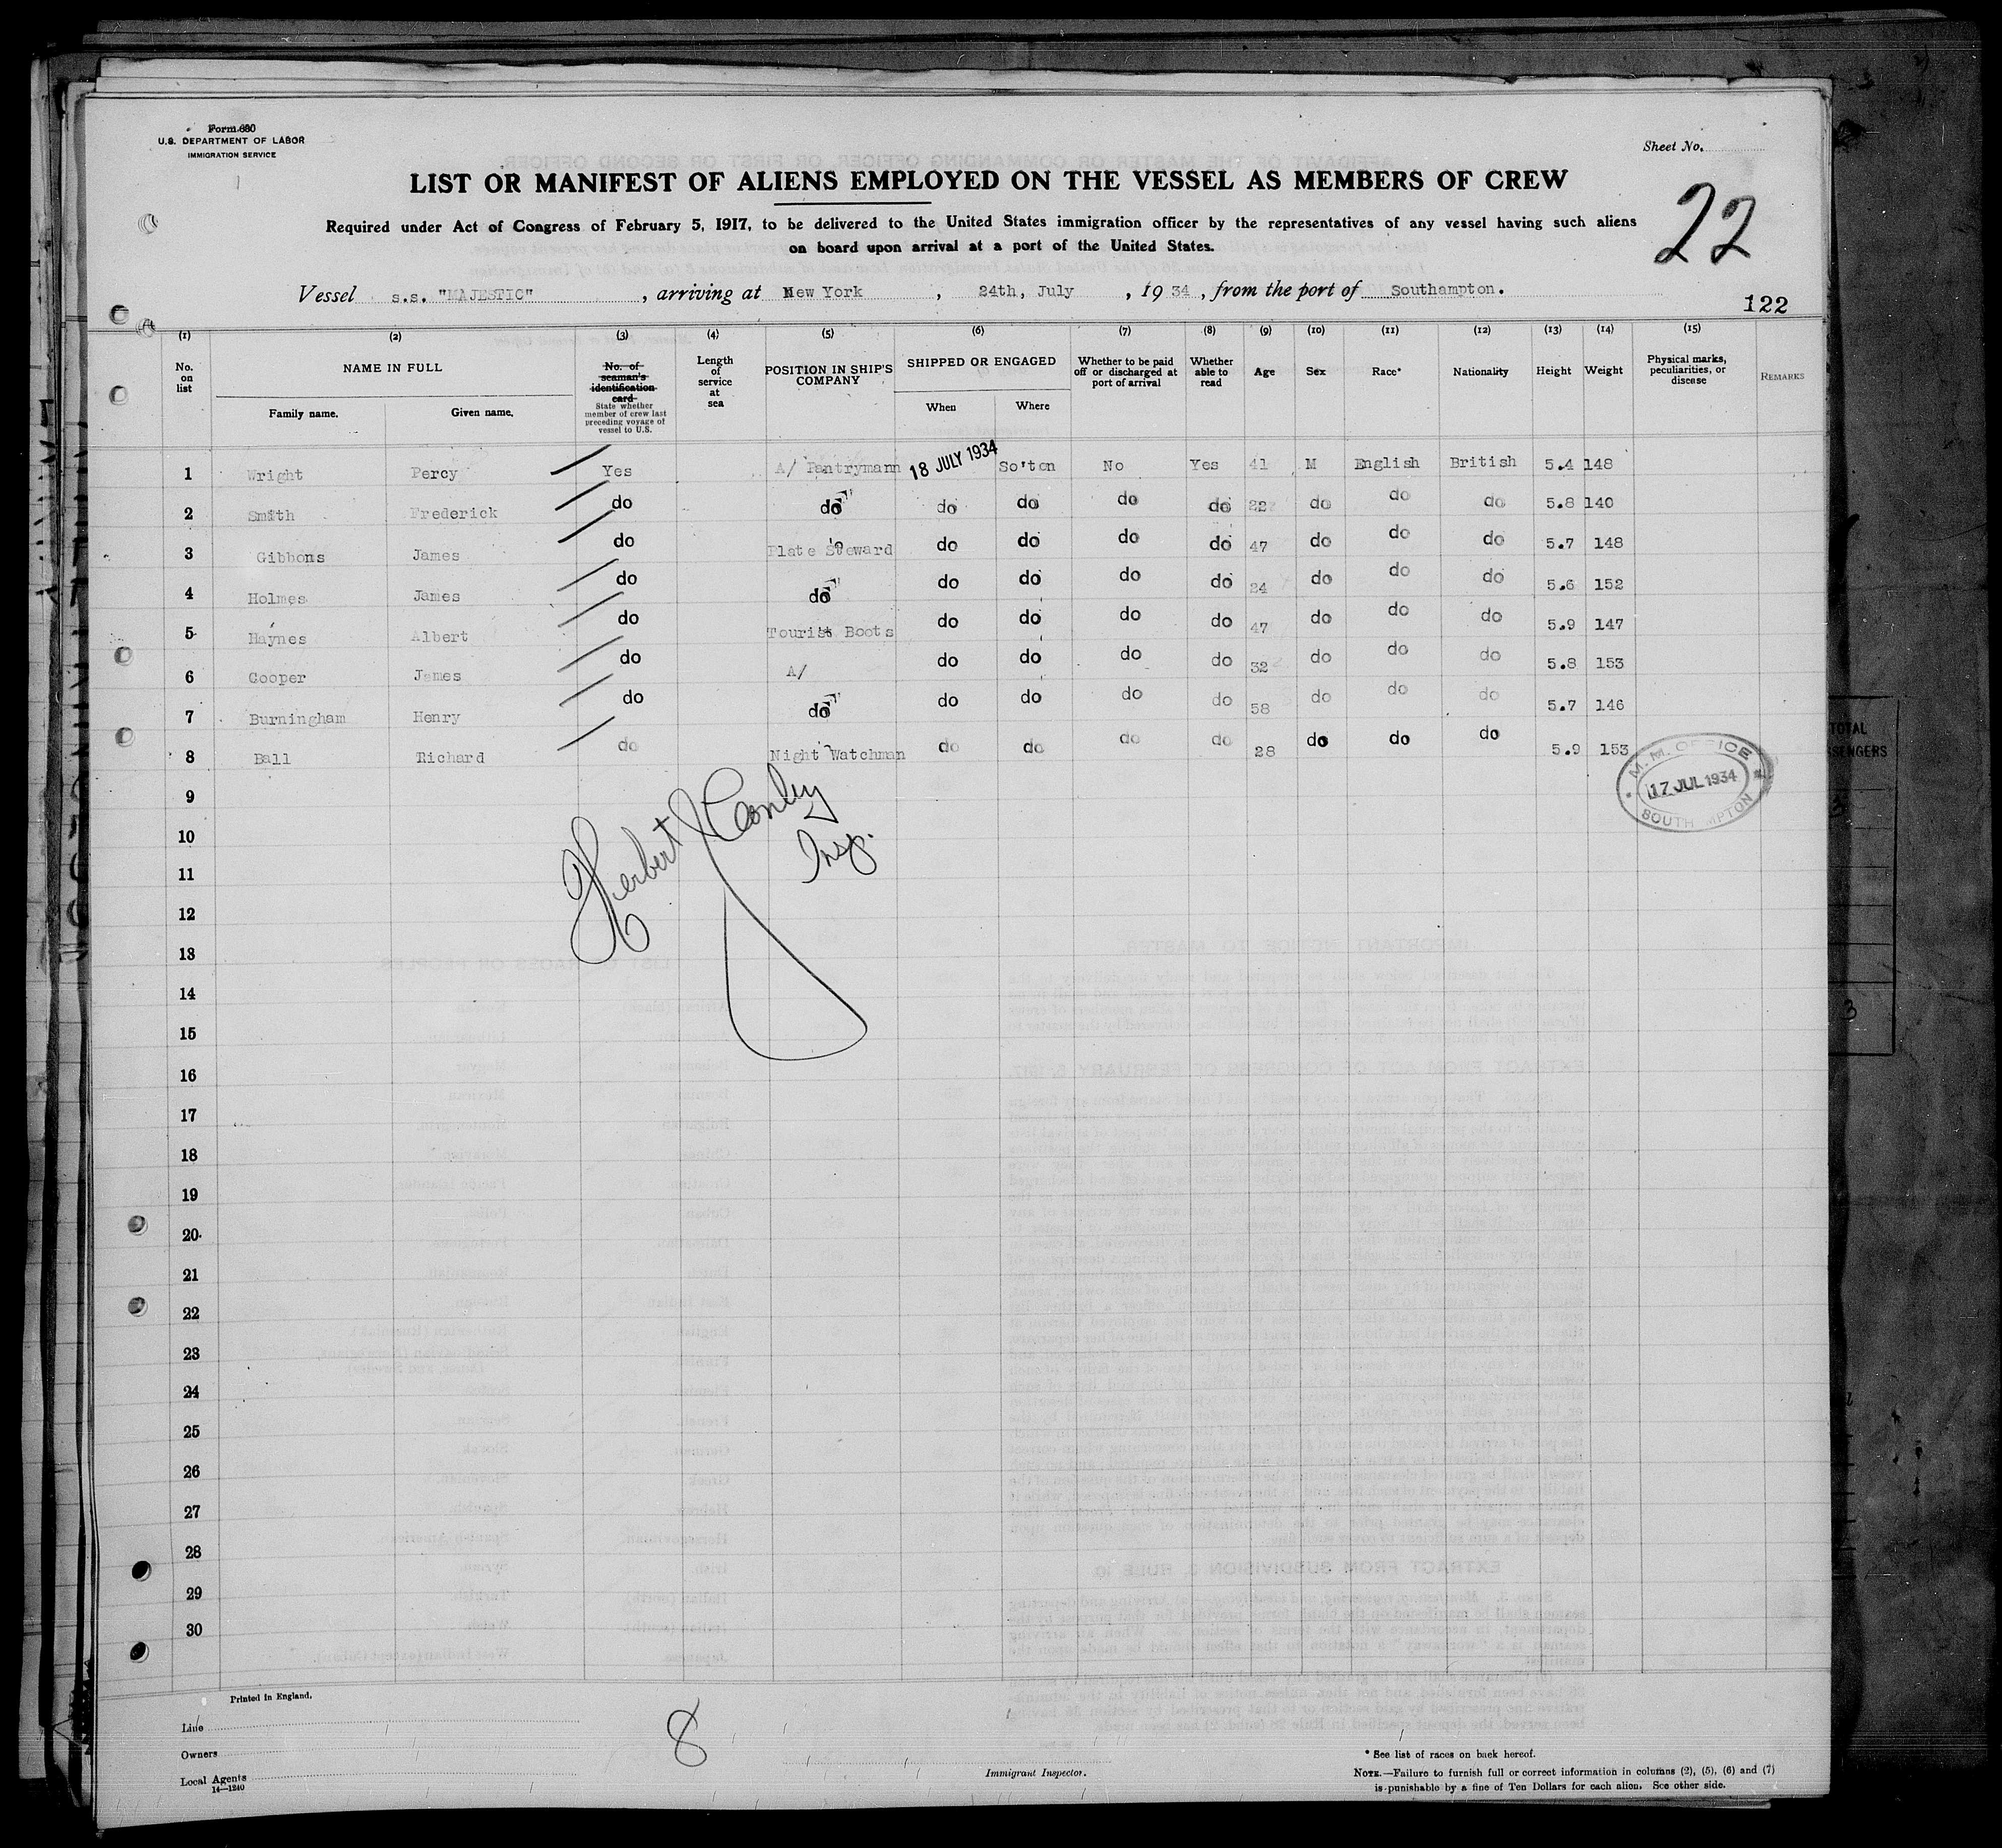 Form 680
U.S. DEPARTMENT OF LABOR
IMMIGRATION SERVICE
Sheet No.
LIST OR MANIFEST OF ALIENS EMPLOYED ON THE VESSEL AS MEMBERS OF CREW
22
Required under Act of Congress of February 5, 1917, to be delivered to the United States immigration officer by the representatives of any vessel having such aliens
on board upon arrival at a port of the United States.
Vessel s.s. "MAJESTIC", arriving at New York, 24th, July, 1934, from the port of Southampton.
122
(1) (2) (3) (4) (5) (6) (7) (8) (9) (10) (11) (12) (13) (14) (15)
No. on list
NAME IN FULL
Family name. Given name.
No. of seaman's identification card
State whether member of crew last preceding voyage of vessel to U.S.
Length of service at sea
POSITION IN SHIP'S COMPANY
SHIPPED OR ENGAGED
When Where
Whether to be paid off or discharged at port of arrival
Whether able to read
Age
Sex
Race*
Nationality
Height
Weight
Physical marks, peculiarities, or disease
REMARKS
1 Wright Percy Yes A/ Pantrymann 18 JULY 1934 So'ton No Yes 41 M English British 5.4 148
2 Smith Frederick do do do do do do 22 do do do 5.8 140
3 Gibbons James do Plate Steward do do do do 47 do do do 5.7 148
4 Holmes James do do do do do do 24 do do do 5.6 152
5 Haynes Albert do Tourist Boots do do do do 47 do do do 5.9 147
6 Cooper James do A/ do do do do 32 do do do 5.8 153
7 Burningham Henry do do do do do do 58 do do do 5.7 146
8 Ball Richard do Night Watchman do do do do 28 do do do 5.9 153
M.M. OFFICE
17 JUL 1934
SOUTH MPTON
9
10
11
12
13
14
15
16
17
18
19
20
21
22
23
24
25
26
27
28
29
30
Herbert J Conley
Insp.
Printed in England.
Line
Owners
Local Agents
14—1240
8
Immigrant Inspector.
* See list of races on back hereof.
NOTE.—Failure to furnish full or correct information in columns (2), (5), (6) and (7)
is punishable by a fine of Ten Dollars for each alien. See other side.
TOTAL
3